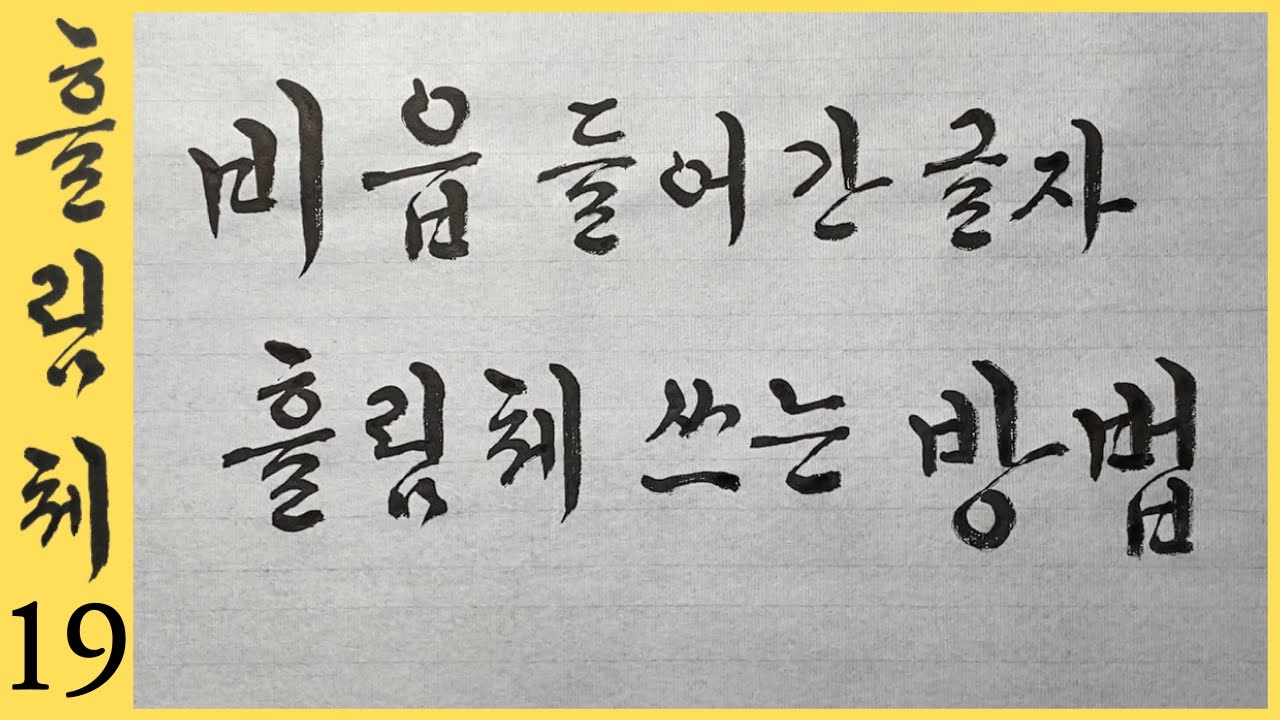 흘림체
19
비읍 들어간 글자
흘림체 쓰는 방법